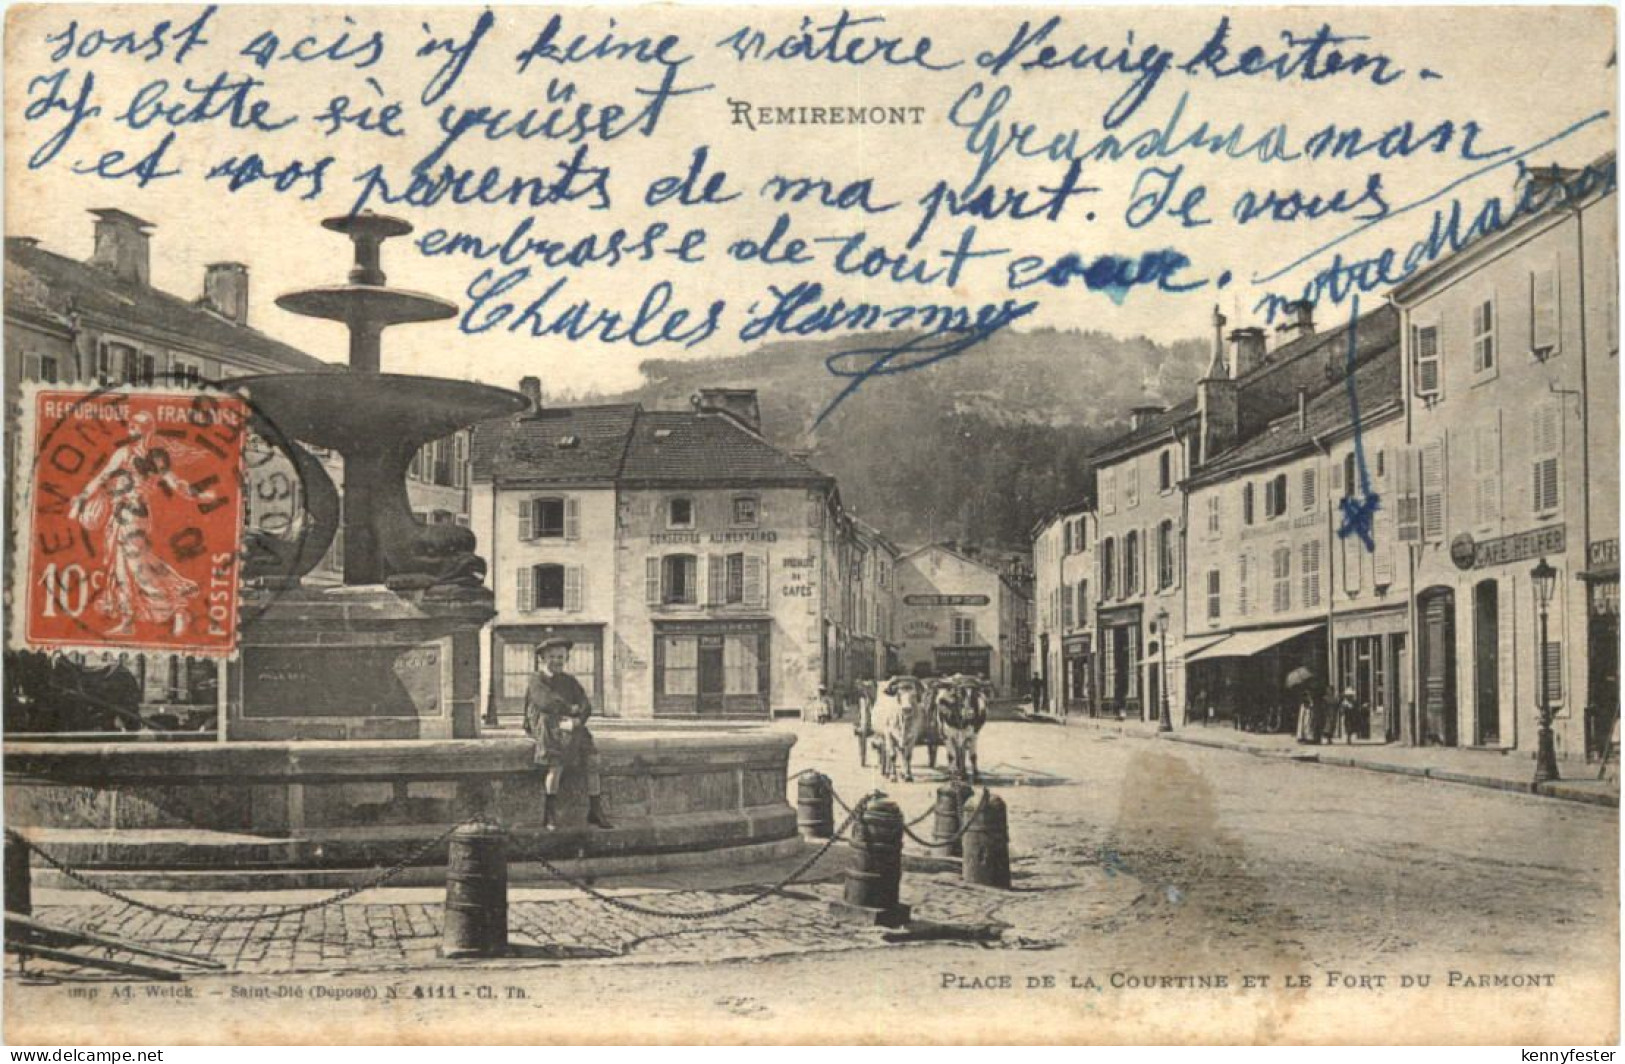 sonst weis ich keine wätere Neuigkeiten.
Ich bitte sie grüset Grandmaman
et vos parents de ma part. Je vous
embrasse de tout cœur.
Charles Hammer
notre Maison
REMIREMONT
REPUBLIQUE FRANÇAISE
10c
POSTES
REMIREMONT
VOSGES
CONSERVES ALIMENTAIRES
SPECIALITÉ
DE
CAFÉS
CAFÉ HELFER
CAFÉ
PLACE DE LA COURTINE ET LE FORT DU PARMONT
Imp. Ad. Weick. — Saint-Dié (Déposé) No 4111 - Cl. Th.
kennyfester